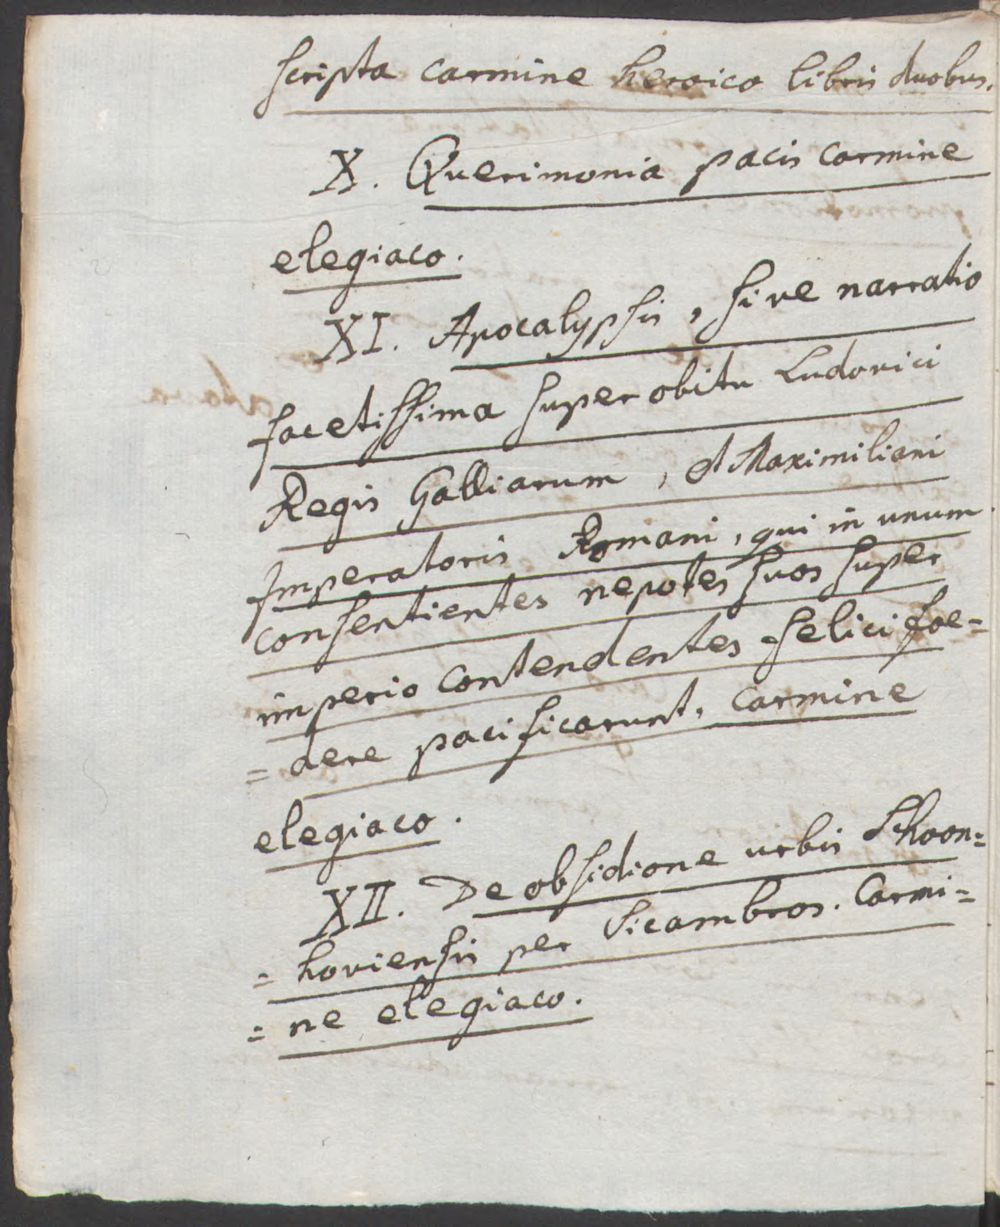 scripta carmine heroico libris duobus.
X. Querimonia pacis carmine
elegiaco.
XI. Apocalypsis, sive narratio
facetissima super obitu Ludovici
Regis Galliarum, et Maximiliani
Imperatoris Romani, qui in unum
consentientes nepotes suos super
imperio contendentes felici foe=
= dere pacificarunt. carmine
elegiaco.
XII. De obsidione urbis Schoon=
= hoviensis per Sicambros. Carmi=
= ne elegiaco.